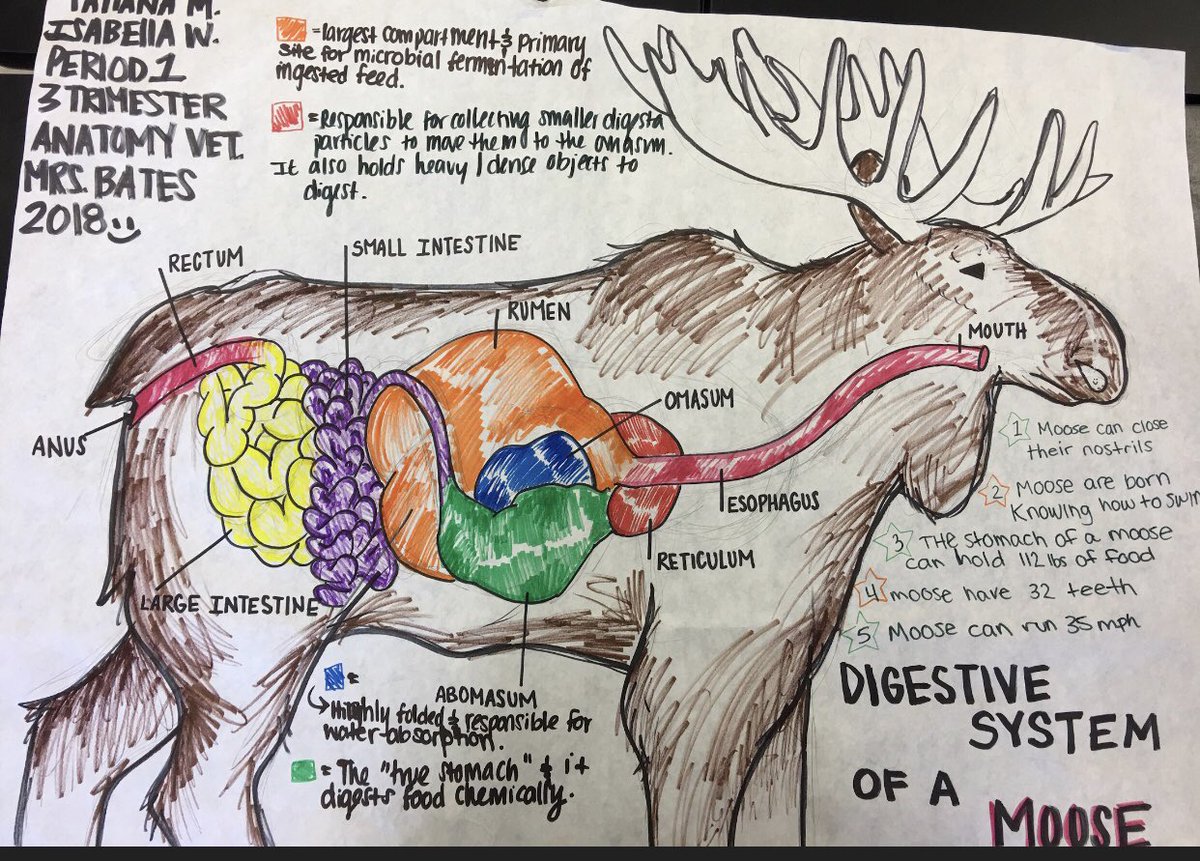 TATIANA M.
ISABELLA W.
PERIOD 1
3 TRIMESTER
ANATOMY VET.
MRS. BATES
2018
=largest compartment & Primary
Site for microbial fermentation of
ingested feed.
=Responsible for collecting smaller digesta
particles to move them to the omasum.
It also holds heavy / dense objects to
digest.
RECTUM
SMALL INTESTINE
RUMEN
MOUTH
OMASUM
ANUS
ESOPHAGUS
RETICULUM
LARGE INTESTINE
ABOMASUM
1 Moose can close
their nostrils
2 Moose are born
Knowing how to swim
3 THE stomach of a moose
can hold 112 lbs of food
4 moose have 32 teeth
5 Moose can run 35 mph
=
Highly folded & responsible for
water absorption.
= The "true stomach" & it
digests food chemically.
DIGESTIVE
SYSTEM
OF A
MOOSE